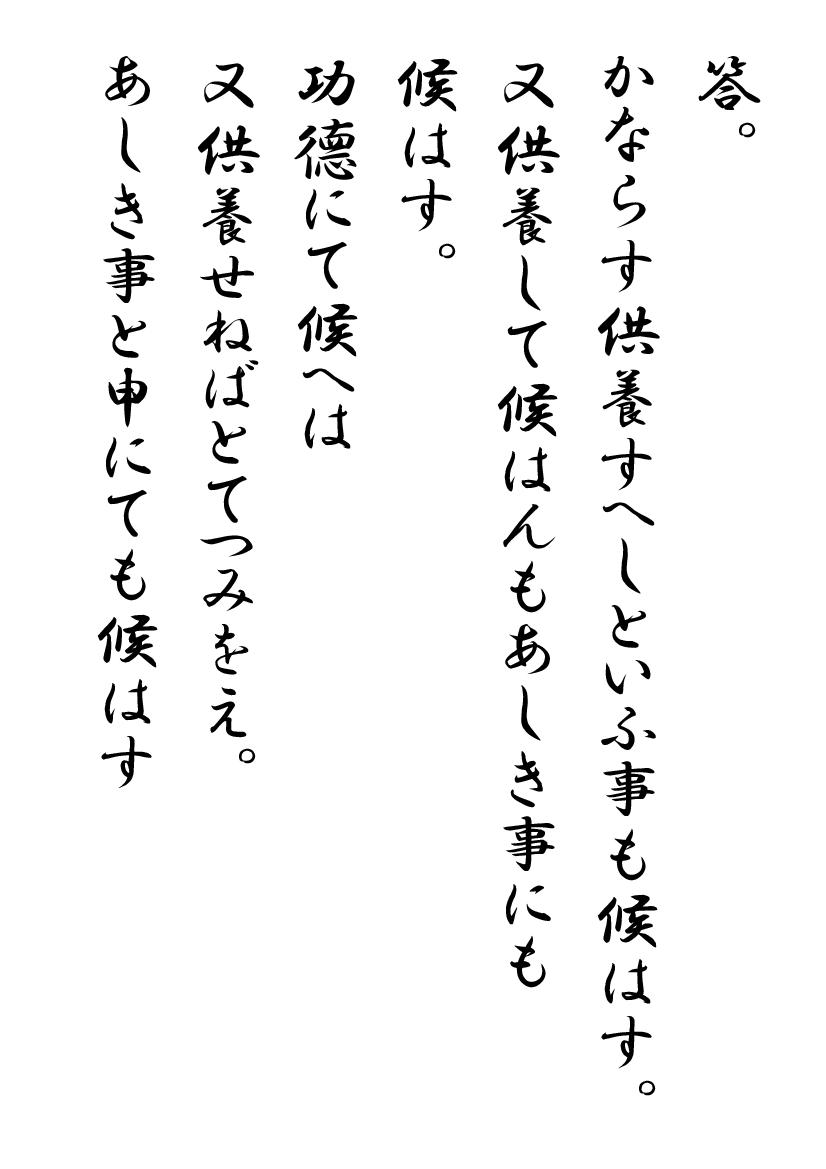 答。
かならす供養すへしといふ事も候はす。
又供養して候はんもあしき事にも
候はす。
功徳にて候へは
又供養せねばとてつみをえ。
あしき事と申にても候はす